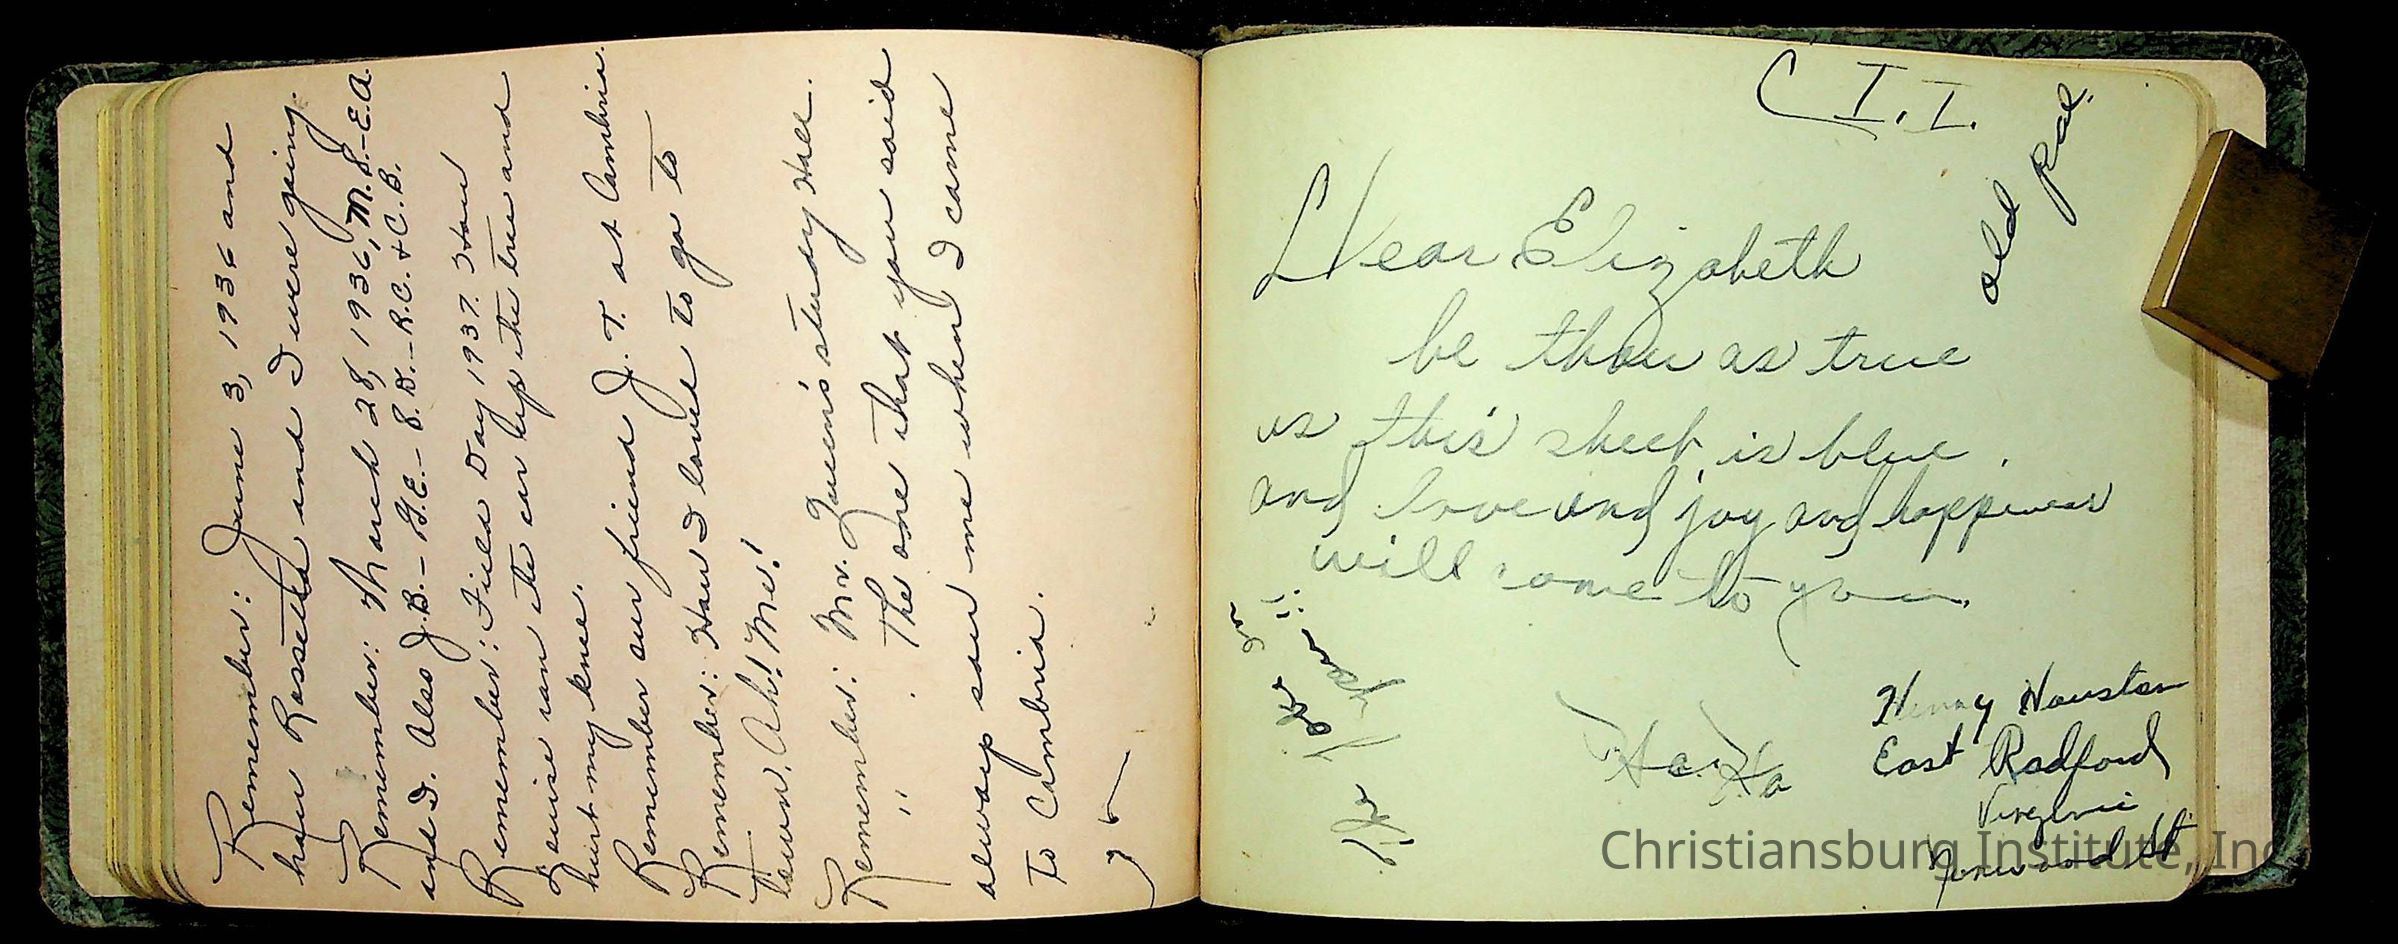 Remember: June 3, 1936 and
how Rosetta and I were going.
Remember: March 28, 1936, M.S.-E.A.
and I. Also J.B.- G.E.- S.D.- R.C. + C.B.
Remember: Field Day 1937. How
Louise ran the car up the tree and
hurt my knee.
Remember our friend J. T. at Cambria.
Remember: How I loved to go to
town. Ah! Me!
Remember: Mr. Queen's study Hall.
" . The one that you said
always saw me when I came
To Cambria.
C I. I.
old pal.
Dear Elizabeth
be thou as true
as this sheet is blue.
and love and joy and happiness
will come to you.
Ha. Ha
Henry Houston
East Radford
Virginia
Norwood St
Christiansburg Institute, Inc